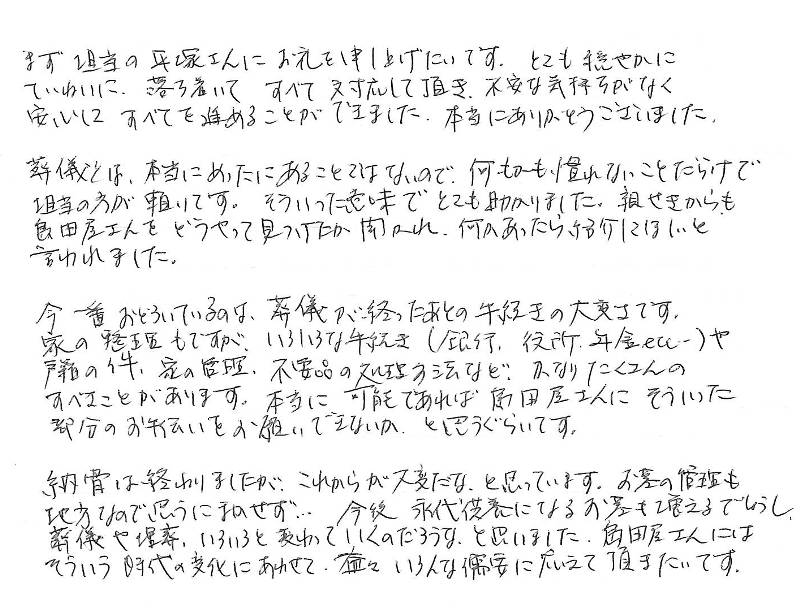 まず担当の平塚さんにお礼を申し上げたいです。とても穏やかに
ていねいに、落ち着いてすべて対応して頂き、不安な気持ちがなく
安心してすべてを進めることができました。本当にありがとうございました。
葬儀とは、本当にめったにあることではないので、何もかも慣れないことだらけで
担当の方が頼りです。そういった意味でとても助かりました。親せきからも
島田屋さんをどうやって見つけたか聞かれ、何かあったら紹介してほしいと
言われました。
今一番おどろいているのは、葬儀が終ったあとの手続きの大変さです。
家の整理もですが、いろいろな手続き(銀行、役所、年金etc…)や
戸籍の件、家の管理、不要品の処理方法など、かなりたくさんの
すべきことがあります。本当に可能であれば島田屋さんにそういった
部分のお手伝いをお願いできないか、と思うぐらいです。
納骨は終わりましたが、これからが大変だな、と思っています。お墓の管理も
地方なので思うにまかせず… 今後永代供養になるお墓も増えるでしょうし、
葬儀や埋葬、いろいろと変わっていくのだろうな、と思いました。島田屋さんには
そういう時代の変化にあわせて、益々いろんな需要に応えて頂きたいです。